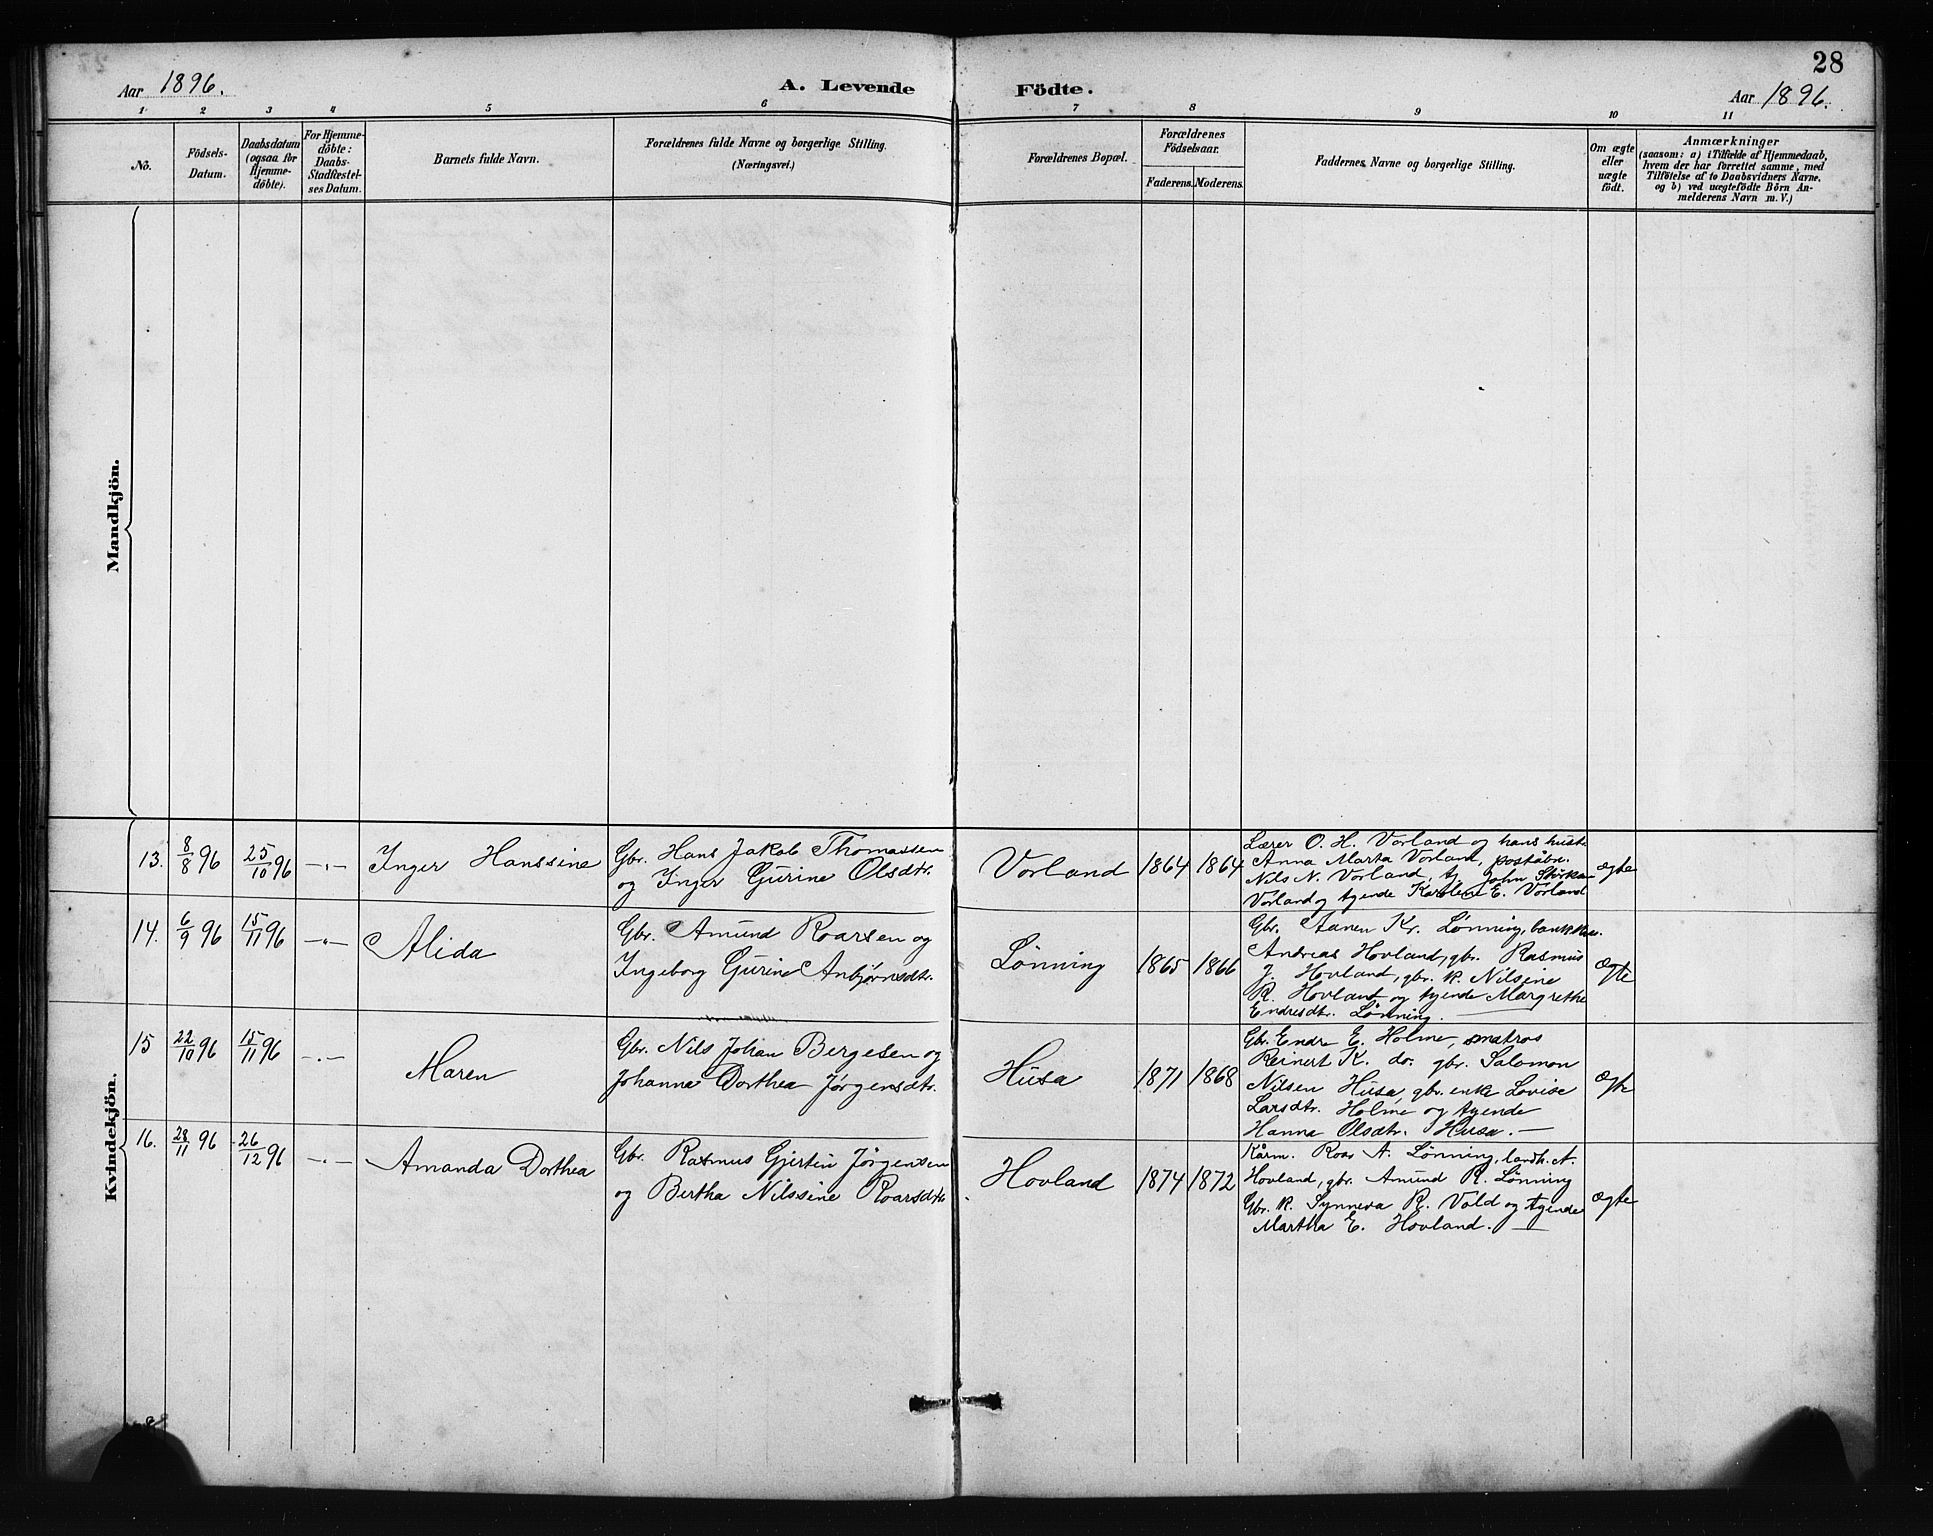 28
Aar 1896.
A. Levende Födte.
Aar 1896.
1 2 3 4 5 6 7 8 9 10 11
No.
Födsels-
Datum.
Daabsdatum
(ogsaa for
Hjemme-
döbte).
For Hjemme-
döbte:
Daabs-
Stadfæstel-
ses Datum.
Barnets fulde Navn.
Forældrenes fulde Navne og borgerlige Stilling.
(Næringsvei.)
Forældrenes Bopæl.
Forældrenes
Födselsaar.
Faderens. Moderens.
Faddernes Navne og borgerlige Stilling.
Om ægte
eller
uægte
födt.
Anmærkninger
(saasom: a) i Tilfælde af Hjemmedaab,
hvem der har forrettet samme, med
Tilföielse af to Daabsvidners Navne,
og b) ved uægtefödte Börn An-
melderens Navn m. V.)
Mandkjön.
Kvindekjön.
13. 8/8 96 25/10 96 —„— Inger Hanssine
Gbr. Hans Jakob Thomassen
og Inger Gurine Olsdtr.
Vorland 1864 1864
Lærer O. H. Vorland og hans hustr.
Anna Marta Vorland, poståbn.
Nils N. Vorland, tj. John
Vorland og tyende Karlene E. Vorland
ægte
14. 6/9 96 15/11 96 —„— Alida
Gbr. Amund Roarsen og
Ingeborg Gurine Anbjørnsdtr.
Lønning 1865 1866
Gbr. Aanen Kr. Lønning,
Andreas Hovland, gbr. Rasmus
J. Hovland, gbr. k. Nilsine
R. Hovland og tyende Margrethe
Endresdtr. Lønning.
ægte
15 22/10 96 15/11 96 —„— Maren
Gbr. Nils Johan Bergesen og
Johanne Dorthea Jørgensdtr.
Husa 1871 1868
Gbr. Endre E. Holme, matros
Reinert K. do. gbr. Salomon
Nilsen Husa, gbr. enke Lovise
Larsdtr. Holme og tyende
Hanna Olsdtr. Husa. —
ægte
16. 28/11 96 26/12 96 —„— Amanda Dorthea
Gbr. Rasmus Gjertin Jørgensen
og Bertha Nilssine Roarsdtr.
Hovland 1874 1872
Kårm. Roar A. Lønning, landh. A.
Hovland, gbr. Amund R. Lønning
Gbr. k. Synneva R. Vold og tyende
Martha E. Hovland. —
ægte